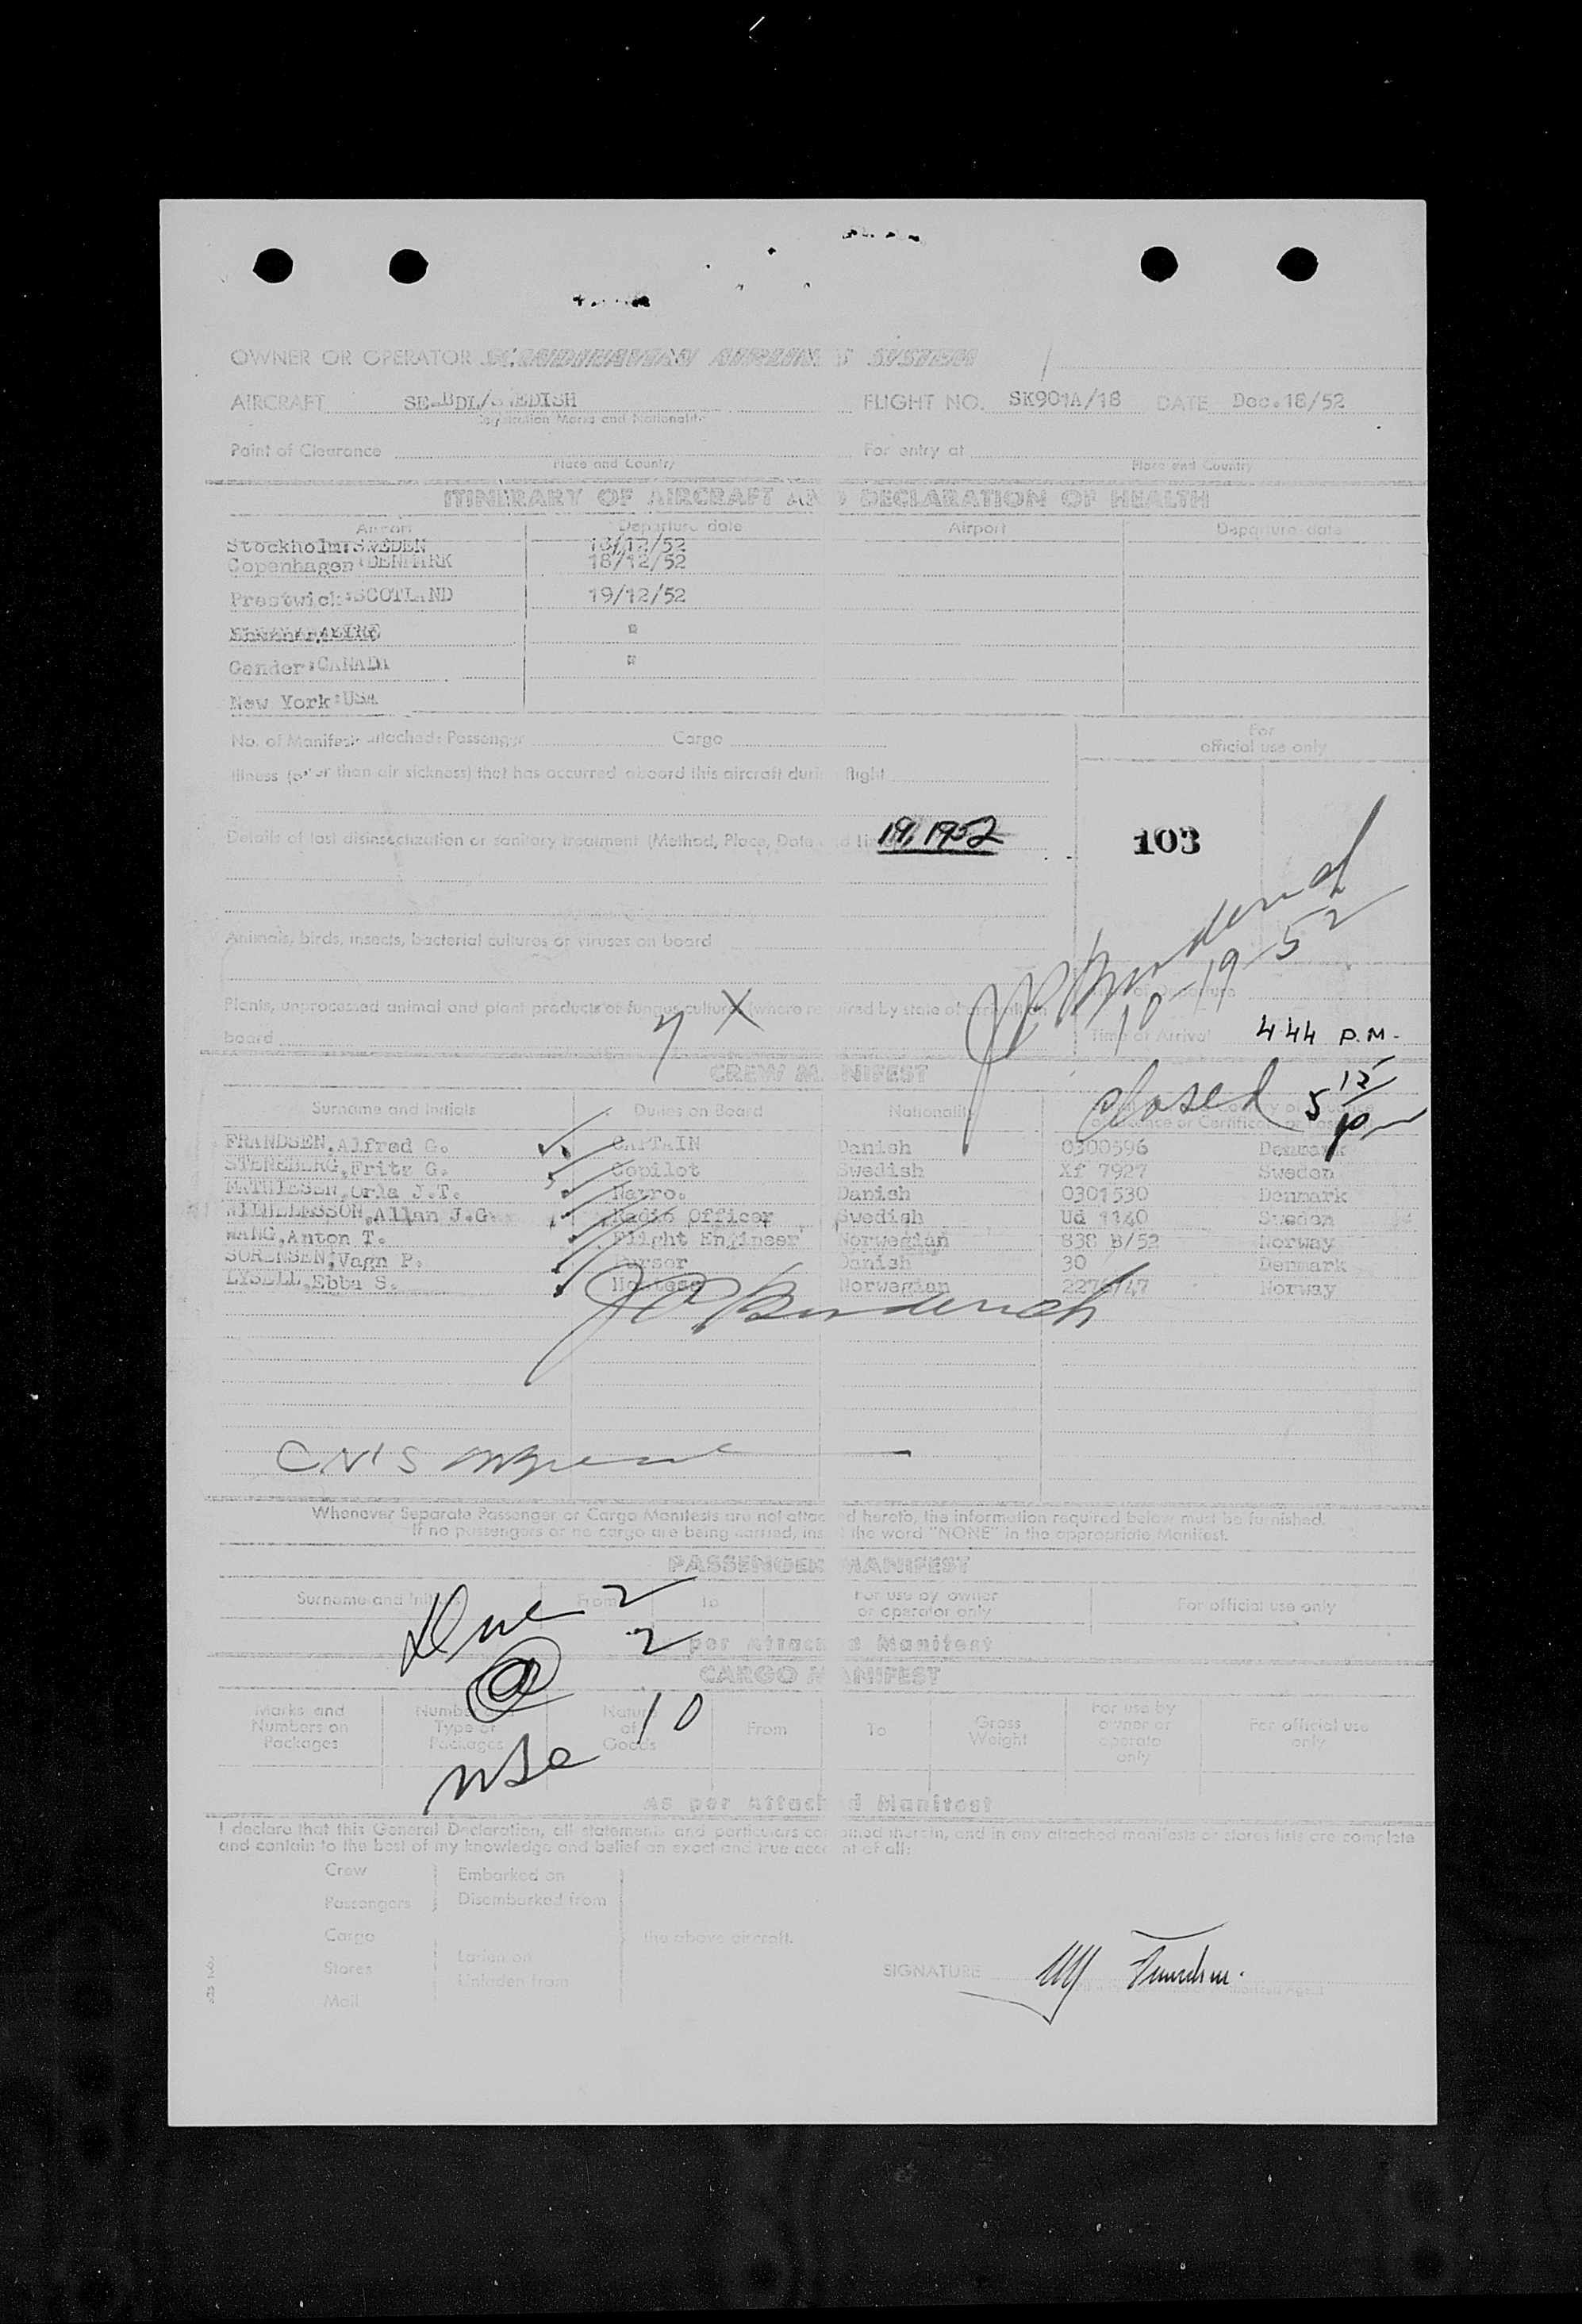 OWNER OR OPERATOR SCANDINAVIAN AIRLINES SYSTEM
AIRCRAFT SE-BDL/SWEDISH FLIGHT NO. SK901A/18 DATE Dec.18/52
Registration Marks and Nationality
Point of Clearance For entry at
Place and Country Place and Country
ITINERARY OF AIRCRAFT AND DECLARATION OF HEALTH
Airport Departure date Airport Departure date
Stockholm:SWEDEN 18/12/52
Copenhagen:DENMARK 18/12/52
Prestwick:SCOTLAND 19/12/52
"
Gander:CANADA "
New York:USA
No. of Manifests attached: Passenger Cargo
For
official use only
Illness (other than air sickness) that has occurred aboard this aircraft during flight
Details of last disinsectization or sanitary treatment (Method, Place, Date and
19, 1952
103
Animals, birds, insects, bacterial cultures or viruses on board
10-19-52
Time of Departure
Plants, unprocessed animal and plant products or fungus cultures (where required by state of arrival) on
board
7 X
Time of Arrival 4 44 P.M.
CREW MANIFEST
closed 5 12/pm
Surname and Initials Duties on Board Nationality
FRANDSEN,Alfred G. CAPTAIN Danish 0300596 Denmark
STENEBERG,Fritz G. Copilot Swedish Xf 7927 Sweden
MATHIESEN,Orla J.T. Navro. Danish 0301530 Denmark
WILHELMSSON,Allan J.G. Radio Officer Swedish Ud 1140 Sweden
WANG,Anton T. Flight Engineer Norwegian 838 B/52 Norway
SORENSEN,Vagn P. Purser Danish 30 Denmark
LYSELL,Ebba S. Hostess Norwegian 2276/47 Norway
Whenever Separate Passenger or Cargo Manifests are not attached hereto, the information required below must be furnished.
If no passengers or no cargo are being carried, insert the word "NONE" in the appropriate Manifest.
PASSENGER MANIFEST
Surname and Initials From To For use by owner or operator only For official use only
2
per Attached Manifest
2
CARGO MANIFEST
Marks and Numbers on Packages Number and Type of Packages Nature of Goods From To Gross Weight For use by owner or operator only For official use only
10
As per Attached Manifest
I declare that this General Declaration, all statements and particulars contained therein, and in any attached manifests or stores lists are complete
and contain to the best of my knowledge and belief an exact and true account of all:
Crew Embarked on
Passengers Disembarked from
Cargo the above aircraft.
Stores Laden on
Unladen from
Mail
SIGNATURE